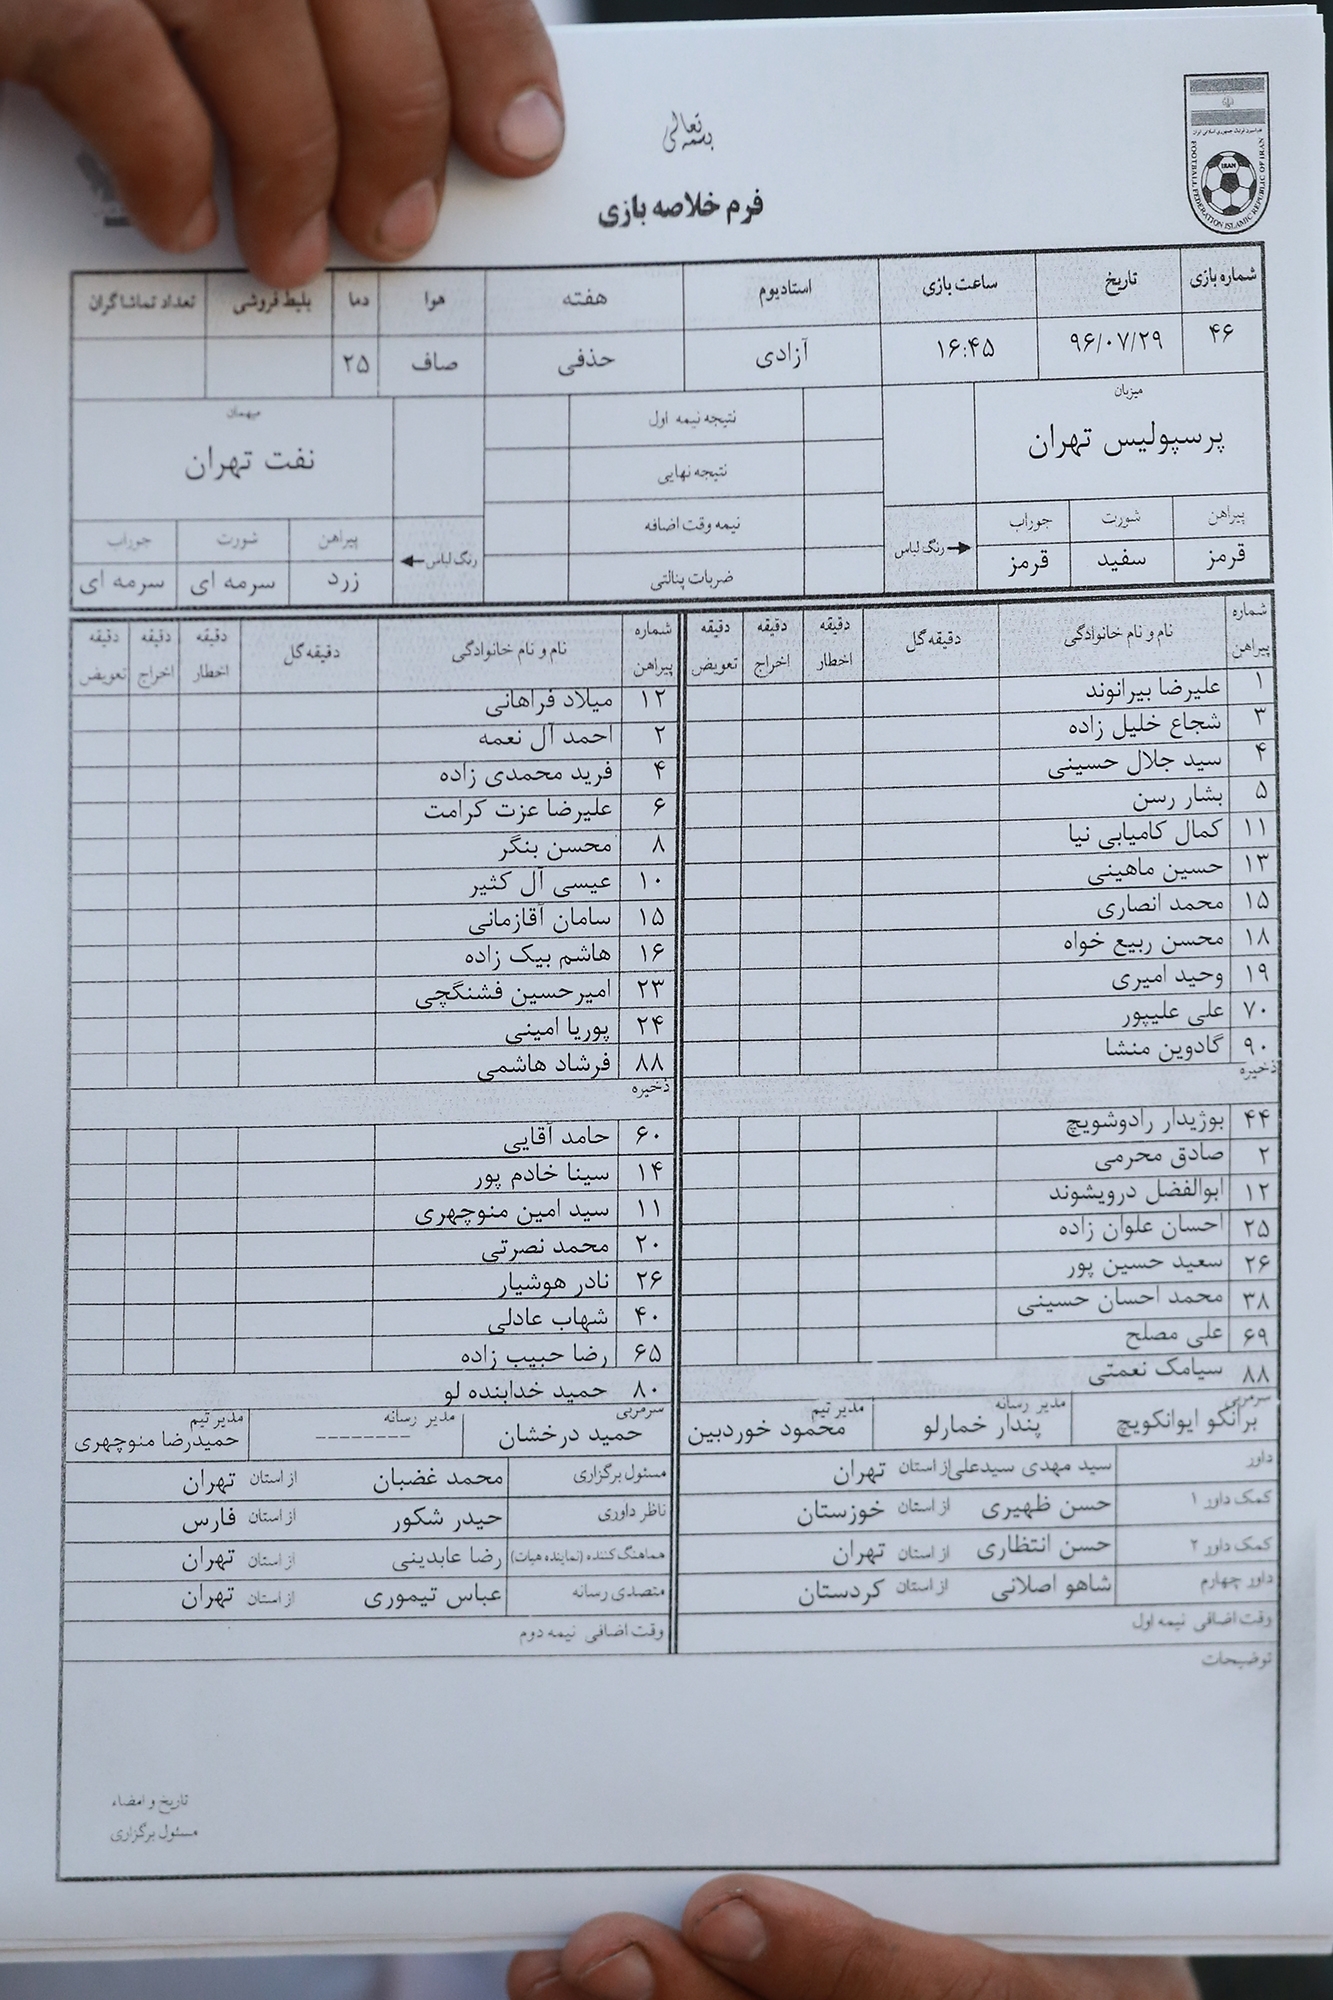 بسمه تعالی
فرم خلاصه بازی
IRAN
FOOTBALL FEDERATION ISLAMIC REPUBLIC OF IRAN
شماره بازی تاریخ ساعت بازی استادیوم هفته هوا دما بلیط فروشی تعداد تماشاگران
۴۶ ۹۶/۰۷/۲۹ ۱۶:۴۵ آزادی حذفی صاف ۲۵
میزبان نتیجه نیمه اول میهمان
پرسپولیس تهران نتیجه نهایی نفت تهران
پیراهن شورت جوراب رنگ لباس نیمه وقت اضافه رنگ لباس پیراهن شورت جوراب
قرمز سفید قرمز ضربات پنالتی زرد سرمه ای سرمه ای
شماره پیراهن نام و نام خانوادگی دقیقه گل دقیقه اخطار دقیقه اخراج دقیقه تعویض شماره پیراهن نام و نام خانوادگی دقیقه گل دقیقه اخطار دقیقه اخراج دقیقه تعویض
۱ علیرضا بیرانوند ۱۲ میلاد فراهانی
۳ شجاع خلیل زاده ۲ احمد آل نعمه
۴ سید جلال حسینی ۴ فرید محمدی زاده
۵ بشار رسن ۶ علیرضا عزت کرامت
۱۱ کمال کامیابی نیا ۸ محسن بنگر
۱۳ حسین ماهینی ۱۰ عیسی آل کثیر
۱۵ محمد انصاری ۱۵ سامان آقازمانی
۱۸ محسن ربیع خواه ۱۶ هاشم بیک زاده
۱۹ وحید امیری ۲۳ امیرحسین فشنگچی
۷۰ علی علیپور ۲۴ پوریا امینی
۹۰ گادوین منشا ۸۸ فرشاد هاشمی
ذخیره ذخیره
۴۴ بوژیدار رادوشویچ ۶۰ حامد آقایی
۲ صادق محرمی ۱۴ سینا خادم پور
۱۲ ابوالفضل درویشوند ۱۱ سید امین منوچهری
۲۵ احسان علوان زاده ۲۰ محمد نصرتی
۲۶ سعید حسین پور ۲۶ نادر هوشیار
۳۸ محمد احسان حسینی ۴۰ شهاب عادلی
۶۹ علی مصلح ۶۵ رضا حبیب زاده
۸۸ سیامک نعمتی ۸۰ حمید خدابنده لو
سرمربی مدیر رسانه مدیر تیم سرمربی مدیر رسانه مدیر تیم
برانکو ایوانکویچ پندار خمارلو محمود خوردبین حمید درخشان -------- حمیدرضا منوچهری
داور سید مهدی سیدعلی از استان تهران مسئول برگزاری محمد غضبان از استان تهران
کمک داور ۱ حسن ظهیری از استان خوزستان ناظر داوری حیدر شکور از استان فارس
کمک داور ۲ حسن انتظاری از استان تهران هماهنگ کننده (نماینده هیات) رضا عابدینی از استان تهران
داور چهارم شاهو اصلانی از استان کردستان متصدی رسانه عباس تیموری از استان تهران
وقت اضافی نیمه اول وقت اضافی نیمه دوم
توضیحات
تاریخ و امضاء
مسئول برگزاری